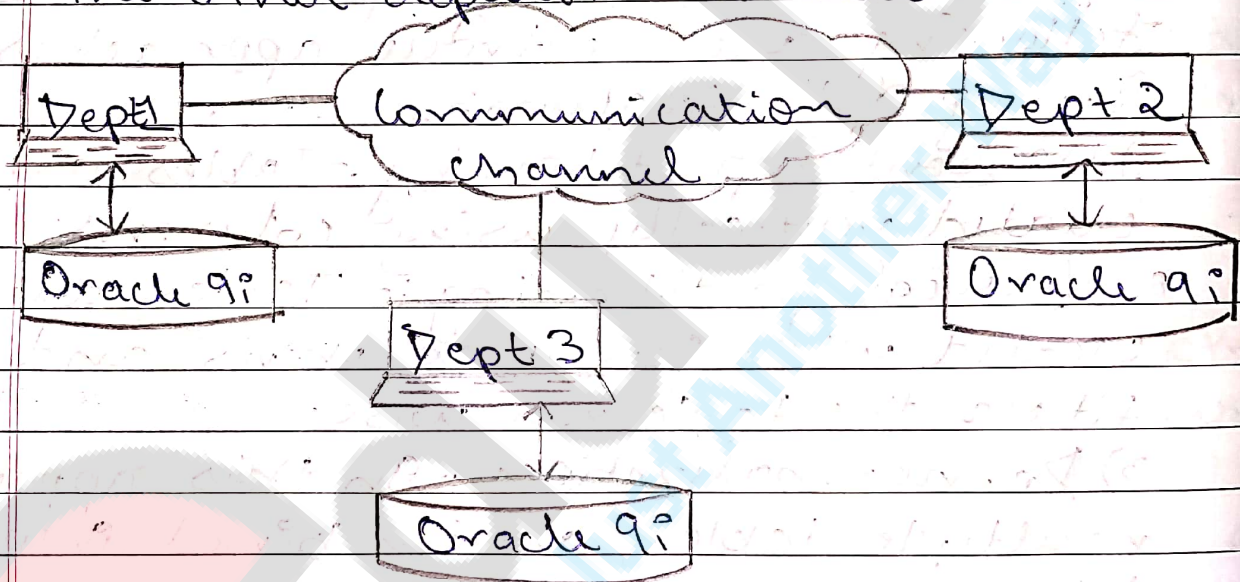 Dept1
Communication
channel
Dept 2
Oracle 9i
Oracle 9i
Dept 3
Oracle 9i
Just Another Way